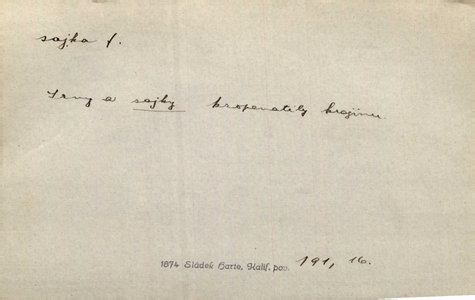 sojka f.
Srny a sojky kropenatily krajinu
1874 Sládek Harte, Kalif. pov. 191, 16.